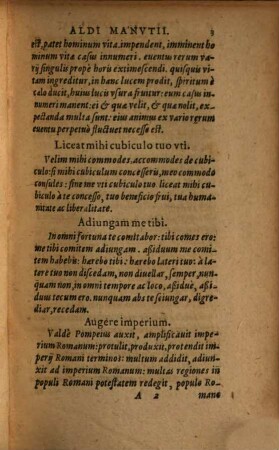 ALDI MANVTII. 3
est, patet hominum vita. impendent, imminent ho
minum vitæ casus innumeri. euentus rerum va
rij singulis propè horis extimescendi. quisquis vi
tam ingreditur, in hanc lucem prodit, spiritum è
cælo ducit, huius lucis vsura fruitur: eum casus in
numeri manent: ei & quæ velit, & quæ nolit, ex-
pectanda multa sunt: eius animū ex vario rerum
euentu perpetuò fluctuet necesse est.
Liceat mihi cubiculo tuo vti.
Velim mihi commodes, accommodes de cubi-
culo: si mihi cubiculum concesseris, meo commodo
consules: sine me vti cubiculo tuo. liceat mihi cu-
biculo à te concesso, tuo beneficio frui, tua huma
nitate ac liberalitate.
Adiungam me tibi.
In omni fortuna te comitabor: tibi comes ero:
me tibi comitem adiungam. assiduum me comi-
tem habebis: hærebo tibi: hærebo lateri tuo: à la-
tere tuo non discedam, non diuellar, semper, nun-
quam non, in omni tempore ac loco, assiduè, as-
siduus tecum ero. nunquam abs te seiungar, digre
diar, recedam.
Augere imperium.
Valdè Pompeius auxit, amplificauit impe-
rium Romanum: protulit, produxit, protendit im-
perij Romani terminos: multum addidit, adiun-
xit ad imperium Romanum: multas regiones in
populi Romani potestatem redegit, populo Ro-
A 2 mano